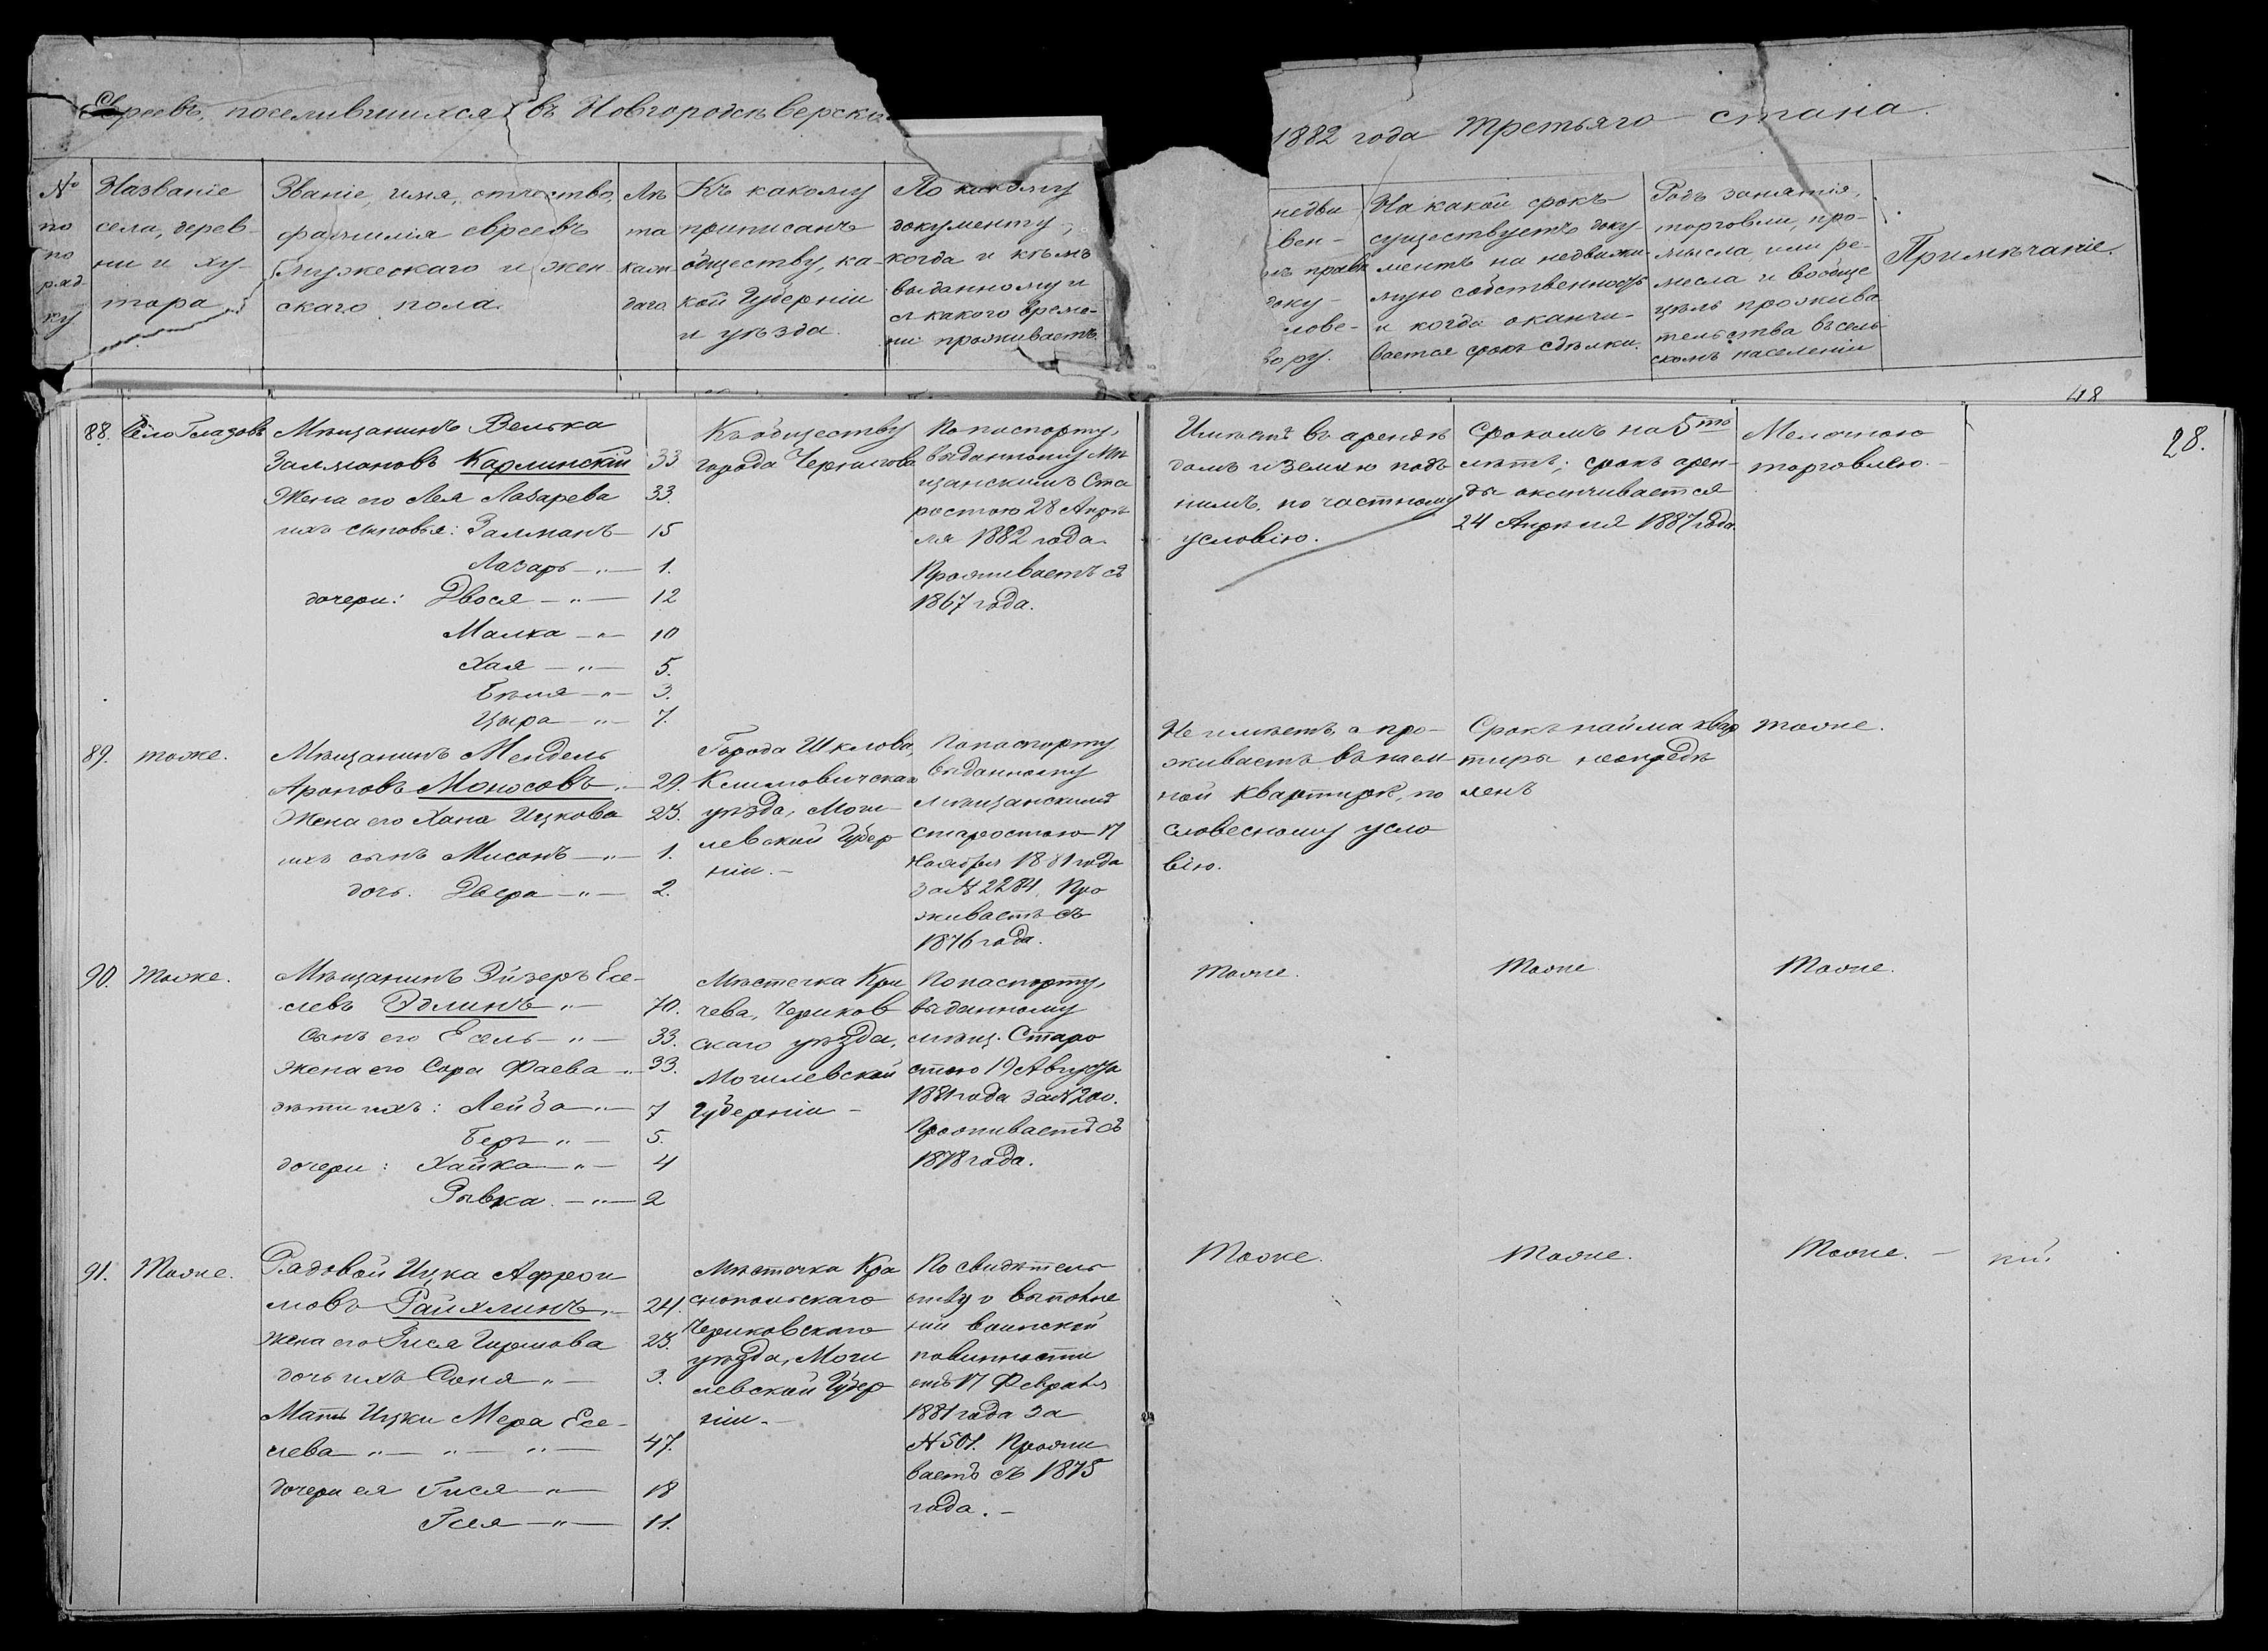 Евреевъ, поселившихся въ Новгородсѣверско
1882 года Третьяго стана.
№ по по ряд- ку
Названіе
села, дерев-
ни и ху-
тора
Званіе, имя, отчество,
фамилія евреевъ
мужескаго и жен-
скаго пола.
Лѣ
та
каж
даго
Къ какому
приписанъ
обществу, ка-
кой Губерніи
и уѣзда
По какому
документу,
когда и кѣмъ
выданному и
съ какого време-
ни проживаетъ.
недви-
вен-
правѣ
доку-
слове-
вору.
На какой срокъ
существуетъ доку-
ментъ на недвижи-
мую собственность
и когда оканчи-
вается срокъ сдѣлки.
Родъ занятія,
торговли, про-
мысла, или ре-
месла и вообще
цѣль прожива
тельства въ сель-
скомъ населеніи
Примѣчаніе.
28.
88. Село Глазовъ
Мѣщанинъ Велька
Залмановъ Карлинскій 33
Жена его Лея Лазарева 33.
ихъ сыновья: Залманъ — 15
Лазарь — " — 1.
дочери: Двося — " — 12
Малка — " — 10
Хая — " — 5.
Бѣля — " — 3.
Цыра — " — 7.
Къ обществу
города Чернигова
По паспорту,
выданному Мѣ
щанскимъ Ста
ростою 28 Апрѣ
ля 1882 года.
Проживаетъ съ
1867 года.
Имѣетъ въ арендѣ
домъ и землю подъ
нимъ, по частному
условію.
Срокомъ на 5ть
лѣтъ; срокъ арен-
ды оканчивается
24 Апрѣля 1887 года.
Мелочною
торговлею.
89. тоже.
Мѣщанинъ Мендель
Ароновъ Моносовъ " — 29.
Жена его Хана Ицкова 23.
ихъ сынъ Мисонъ — " — 1.
дочь. Двера — " — 2.
Города Шклова,
Климовичскаго
уѣзда, Моги-
левской Губер
ніи. —
По паспорту
выданному
мѣщанскимъ
старостою 17
Ноября 1881 года
за № 2284, Про
живаетъ съ
1876 года.
Не имѣетъ, а про-
живаетъ въ наем-
ной квартирѣ, по
словесному усло
вію.
Срокъ найма квар
тиры неопредѣ
ленъ
тоже.
90. Тоже.
Мѣщанинъ Эйзеръ Есе-
левъ Эдлинъ " — 70.
Сынъ его Есель " — 33.
Жена его Сора Фаева " 33.
дѣти ихъ: Лейба " — 7
Беръ " — 5.
дочери: Хайка — " — 4
Рывка. — " — 2
Мѣстечка Кри
чева, Чериков
скаго уѣзда,
Могилевской
Губерніи —
По паспорту,
выданному
мѣщ. Старо
стою 19 Августа
1881 года за № 200.
Проживаетъ съ
1878 года.
тоже.
Тоже
Тоже.
91. Тоже.
Рядовой Ицка Афрои
мовъ Райхлинъ " — 24.
Жена его Гися Гиршова 23.
дочь ихъ Соня " — 3.
Мать Ицки Мера Есе-
лева " — " — " — 47.
дочери ея Гися — " — 18
Геся — " — 11.
Мѣстечка Кра
снопольскаго
Чериковскаго
уѣзда, Моги
левской Губер
ніи. —
По свидѣтель
ству о выполне
ніи воинской
повинности
отъ 17 Февраля
1881 года за
№ 501. Прожи
ваетъ съ 1875
года. —
Тоже.
Тоже.
Тоже. —